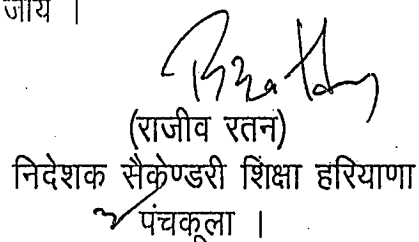 जाय ।
(राजीव रतन)
निदेशक सैकेण्डरी शिक्षा हरियाणा
पंचकूला ।